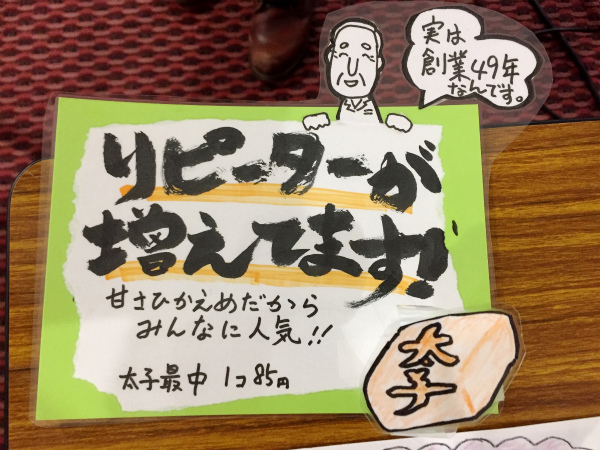 実は
創業49年
なんです。
リピーターが
増えてます!
甘さひかえめだから
みんなに人気!!
太子最中 1コ85円
太子